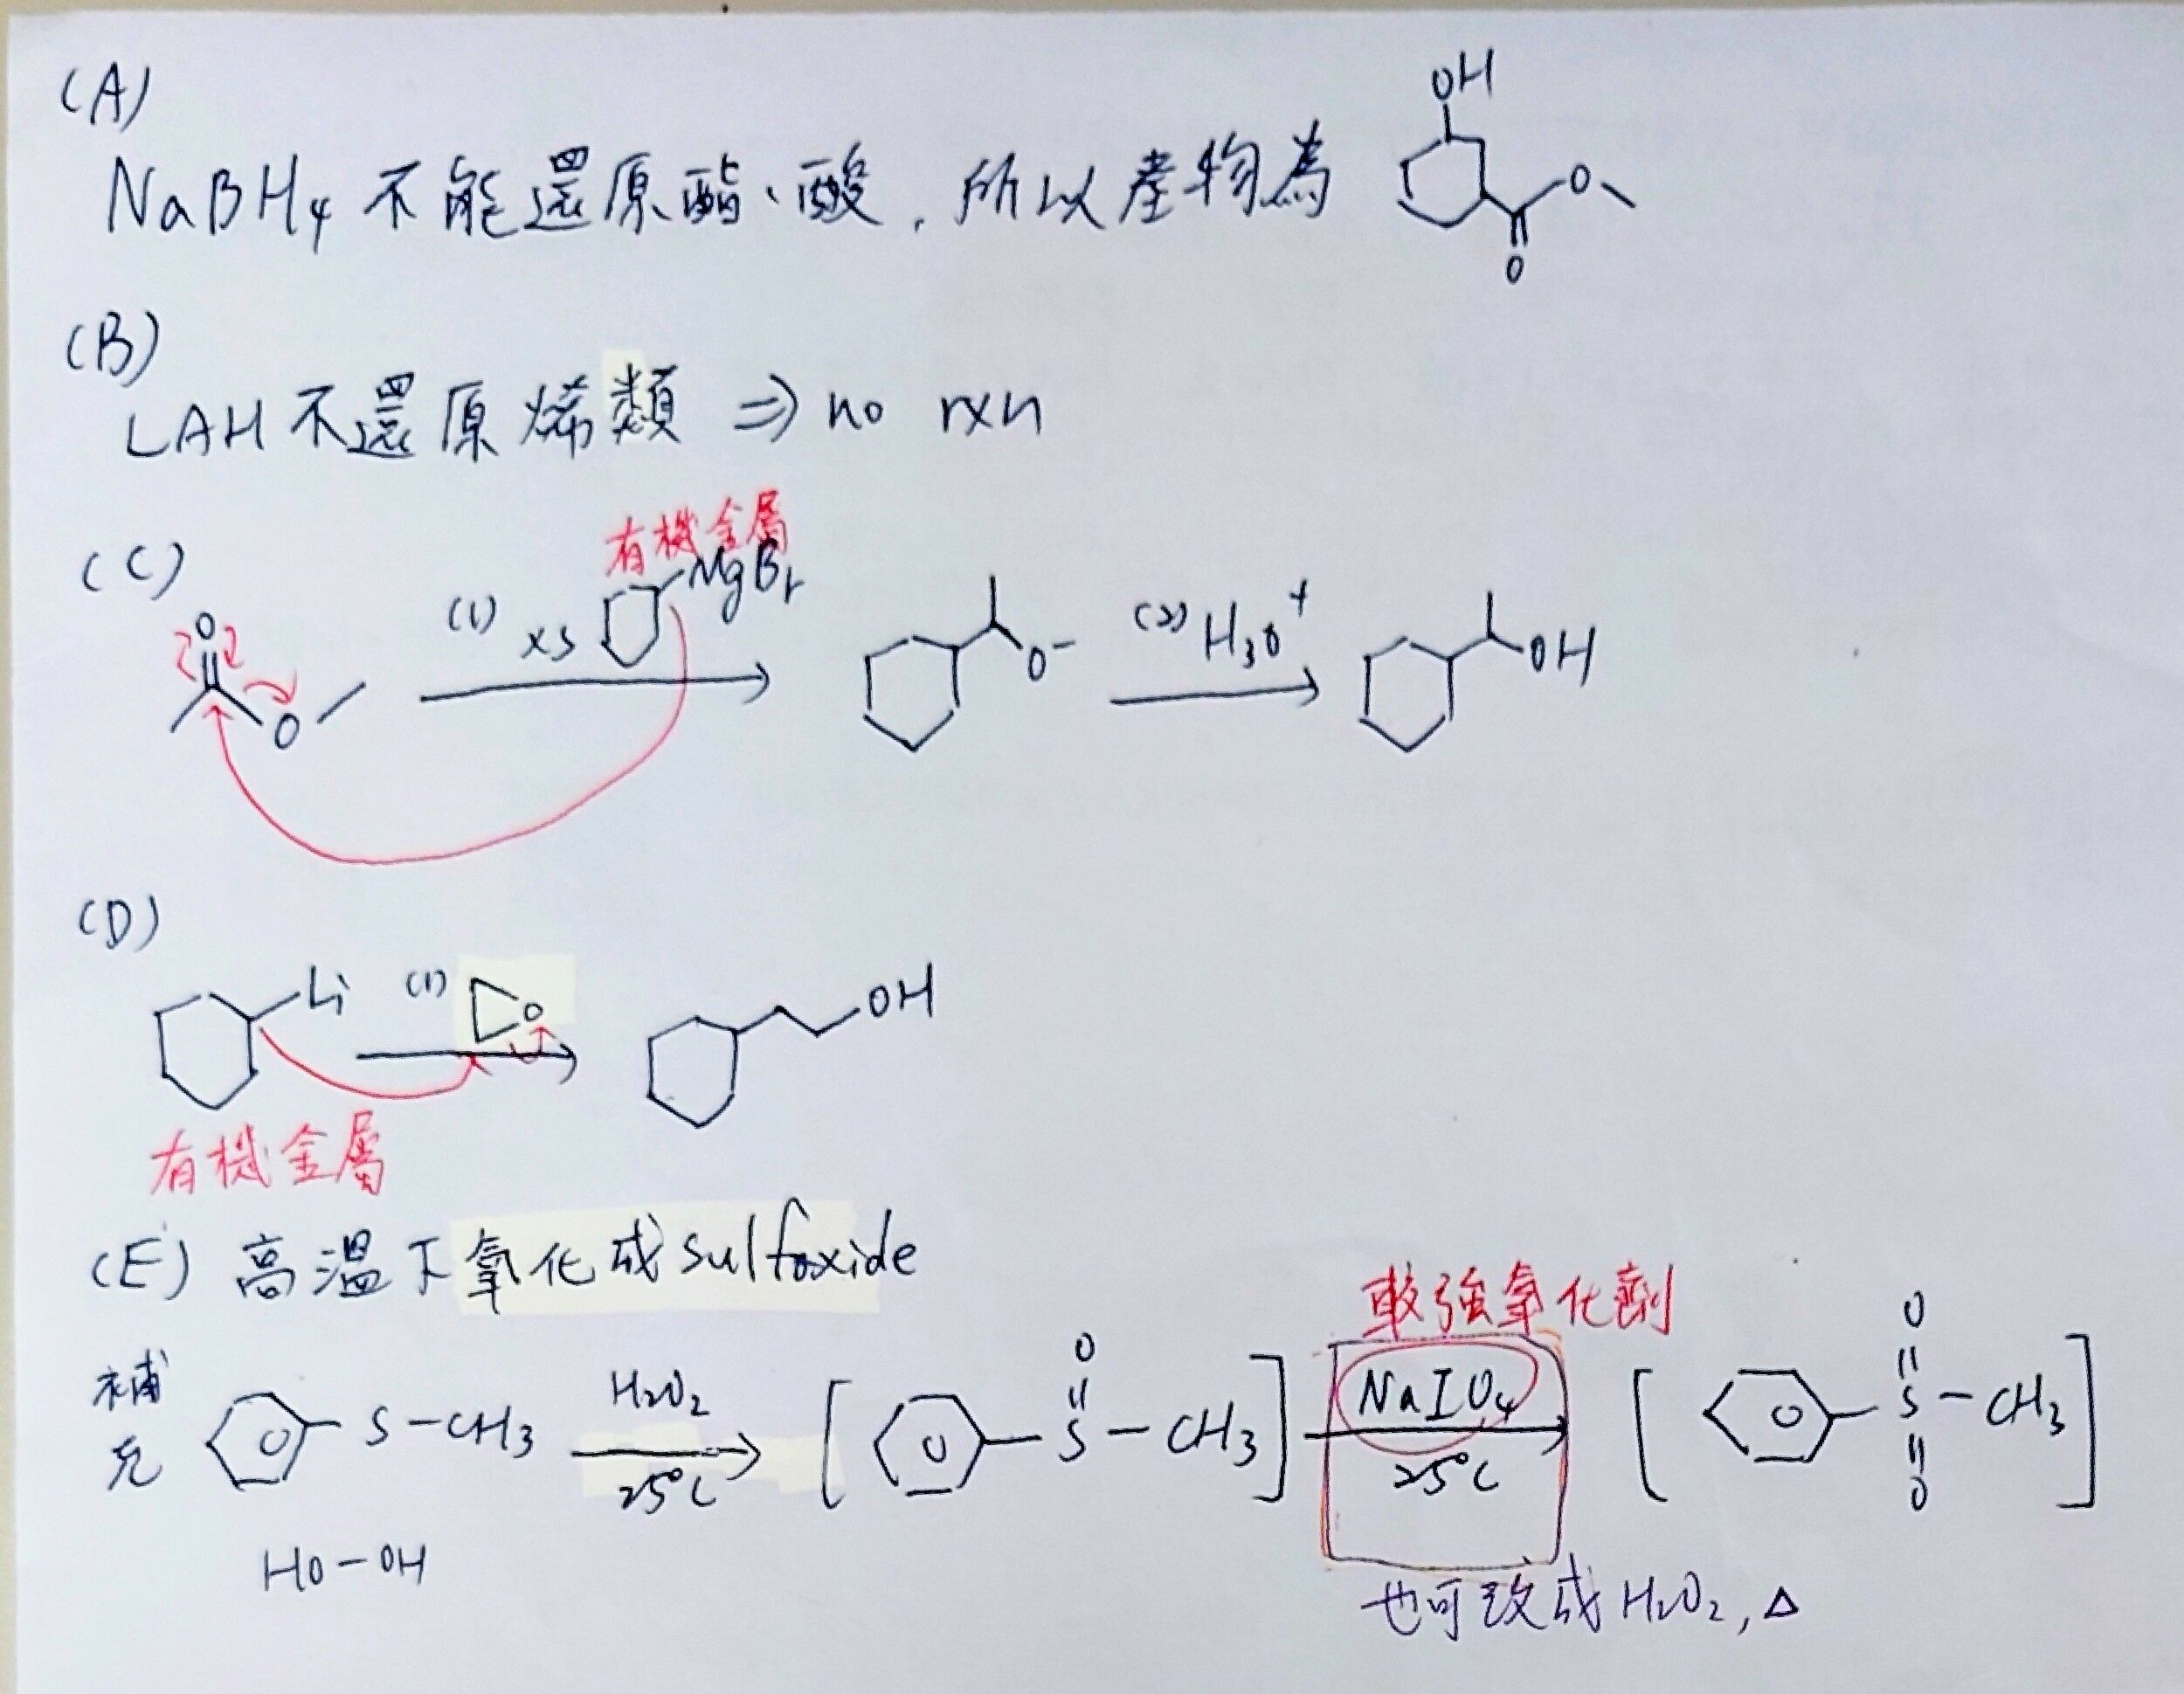 (A)
OH
NaBH4 不能還原酯、酸，所以產物為
O
O
(B)
LAH 不還原烯類 ⇒ no rxn
(C)
有機金屬
MgBr
(1) xs
O
O
O−
(2) H3O+
OH
(D)
Li
(1)
O
OH
有機金屬
(E) 高溫下氧化成 sulfoxide
較強氧化劑
補充
S−CH3
H2O2
25°C
[
O
S−CH3
]
NaIO4
25°C
[
O
S−CH3
O
]
HO−OH
也可改成 H2O2, Δ